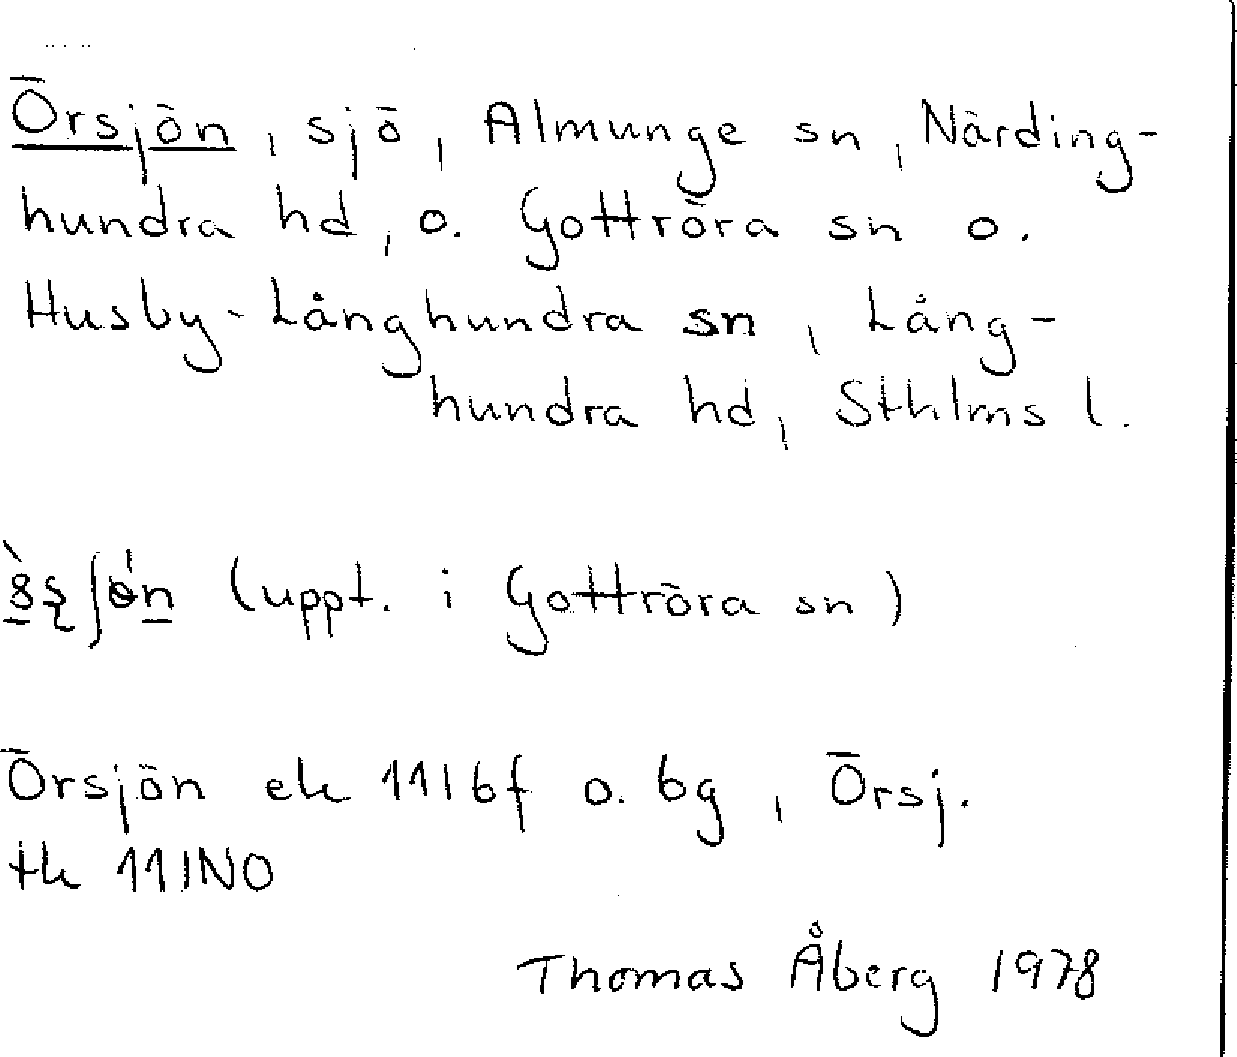 Örsjön, sjö, Almunge sn, Närding-
hundra hd, o. Gottröra sn o.
Husby-Långhundra sn, Lång-
hundra hd, Sthlms l.
(uppt. i Gottröra sn)
Örsjön ek 11I6f o. 6g, Örsj.
tk 11INO
Thomas Åberg 1978